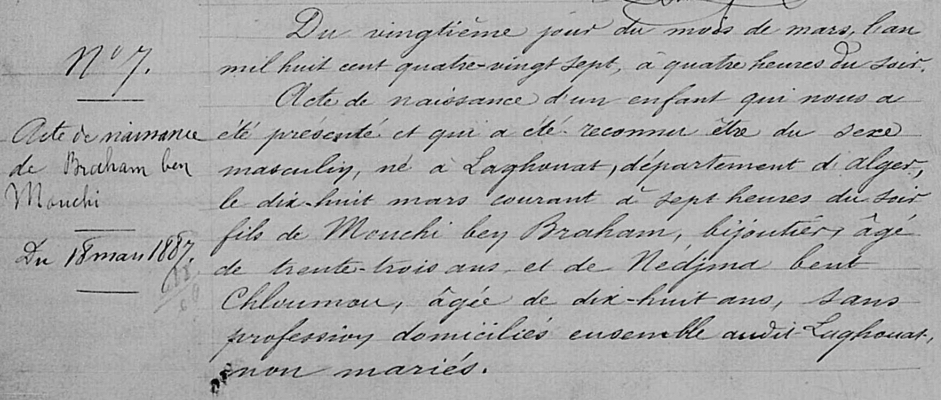 N° 7.
Acte de naissance
de Braham ben
Mouchi
Du 18 mars 1887.
Du vingtième jour du mois de mars, l'an
mil huit cent quatre-vingt sept, à quatre heures du soir.
Acte de naissance d'un enfant qui nous a
été présenté et qui a été reconnu être du sexe
masculin, né à Laghouat, département d'Alger,
le dix-huit mars courant à sept heures du soir
fils de Mouchi ben Braham, bijoutier, âgé
de trente-trois ans et de Nedjma bent
Chloumou, âgée de dix-huit ans, sans
profession domiciliés ensemble audit Laghouat,
non mariés.